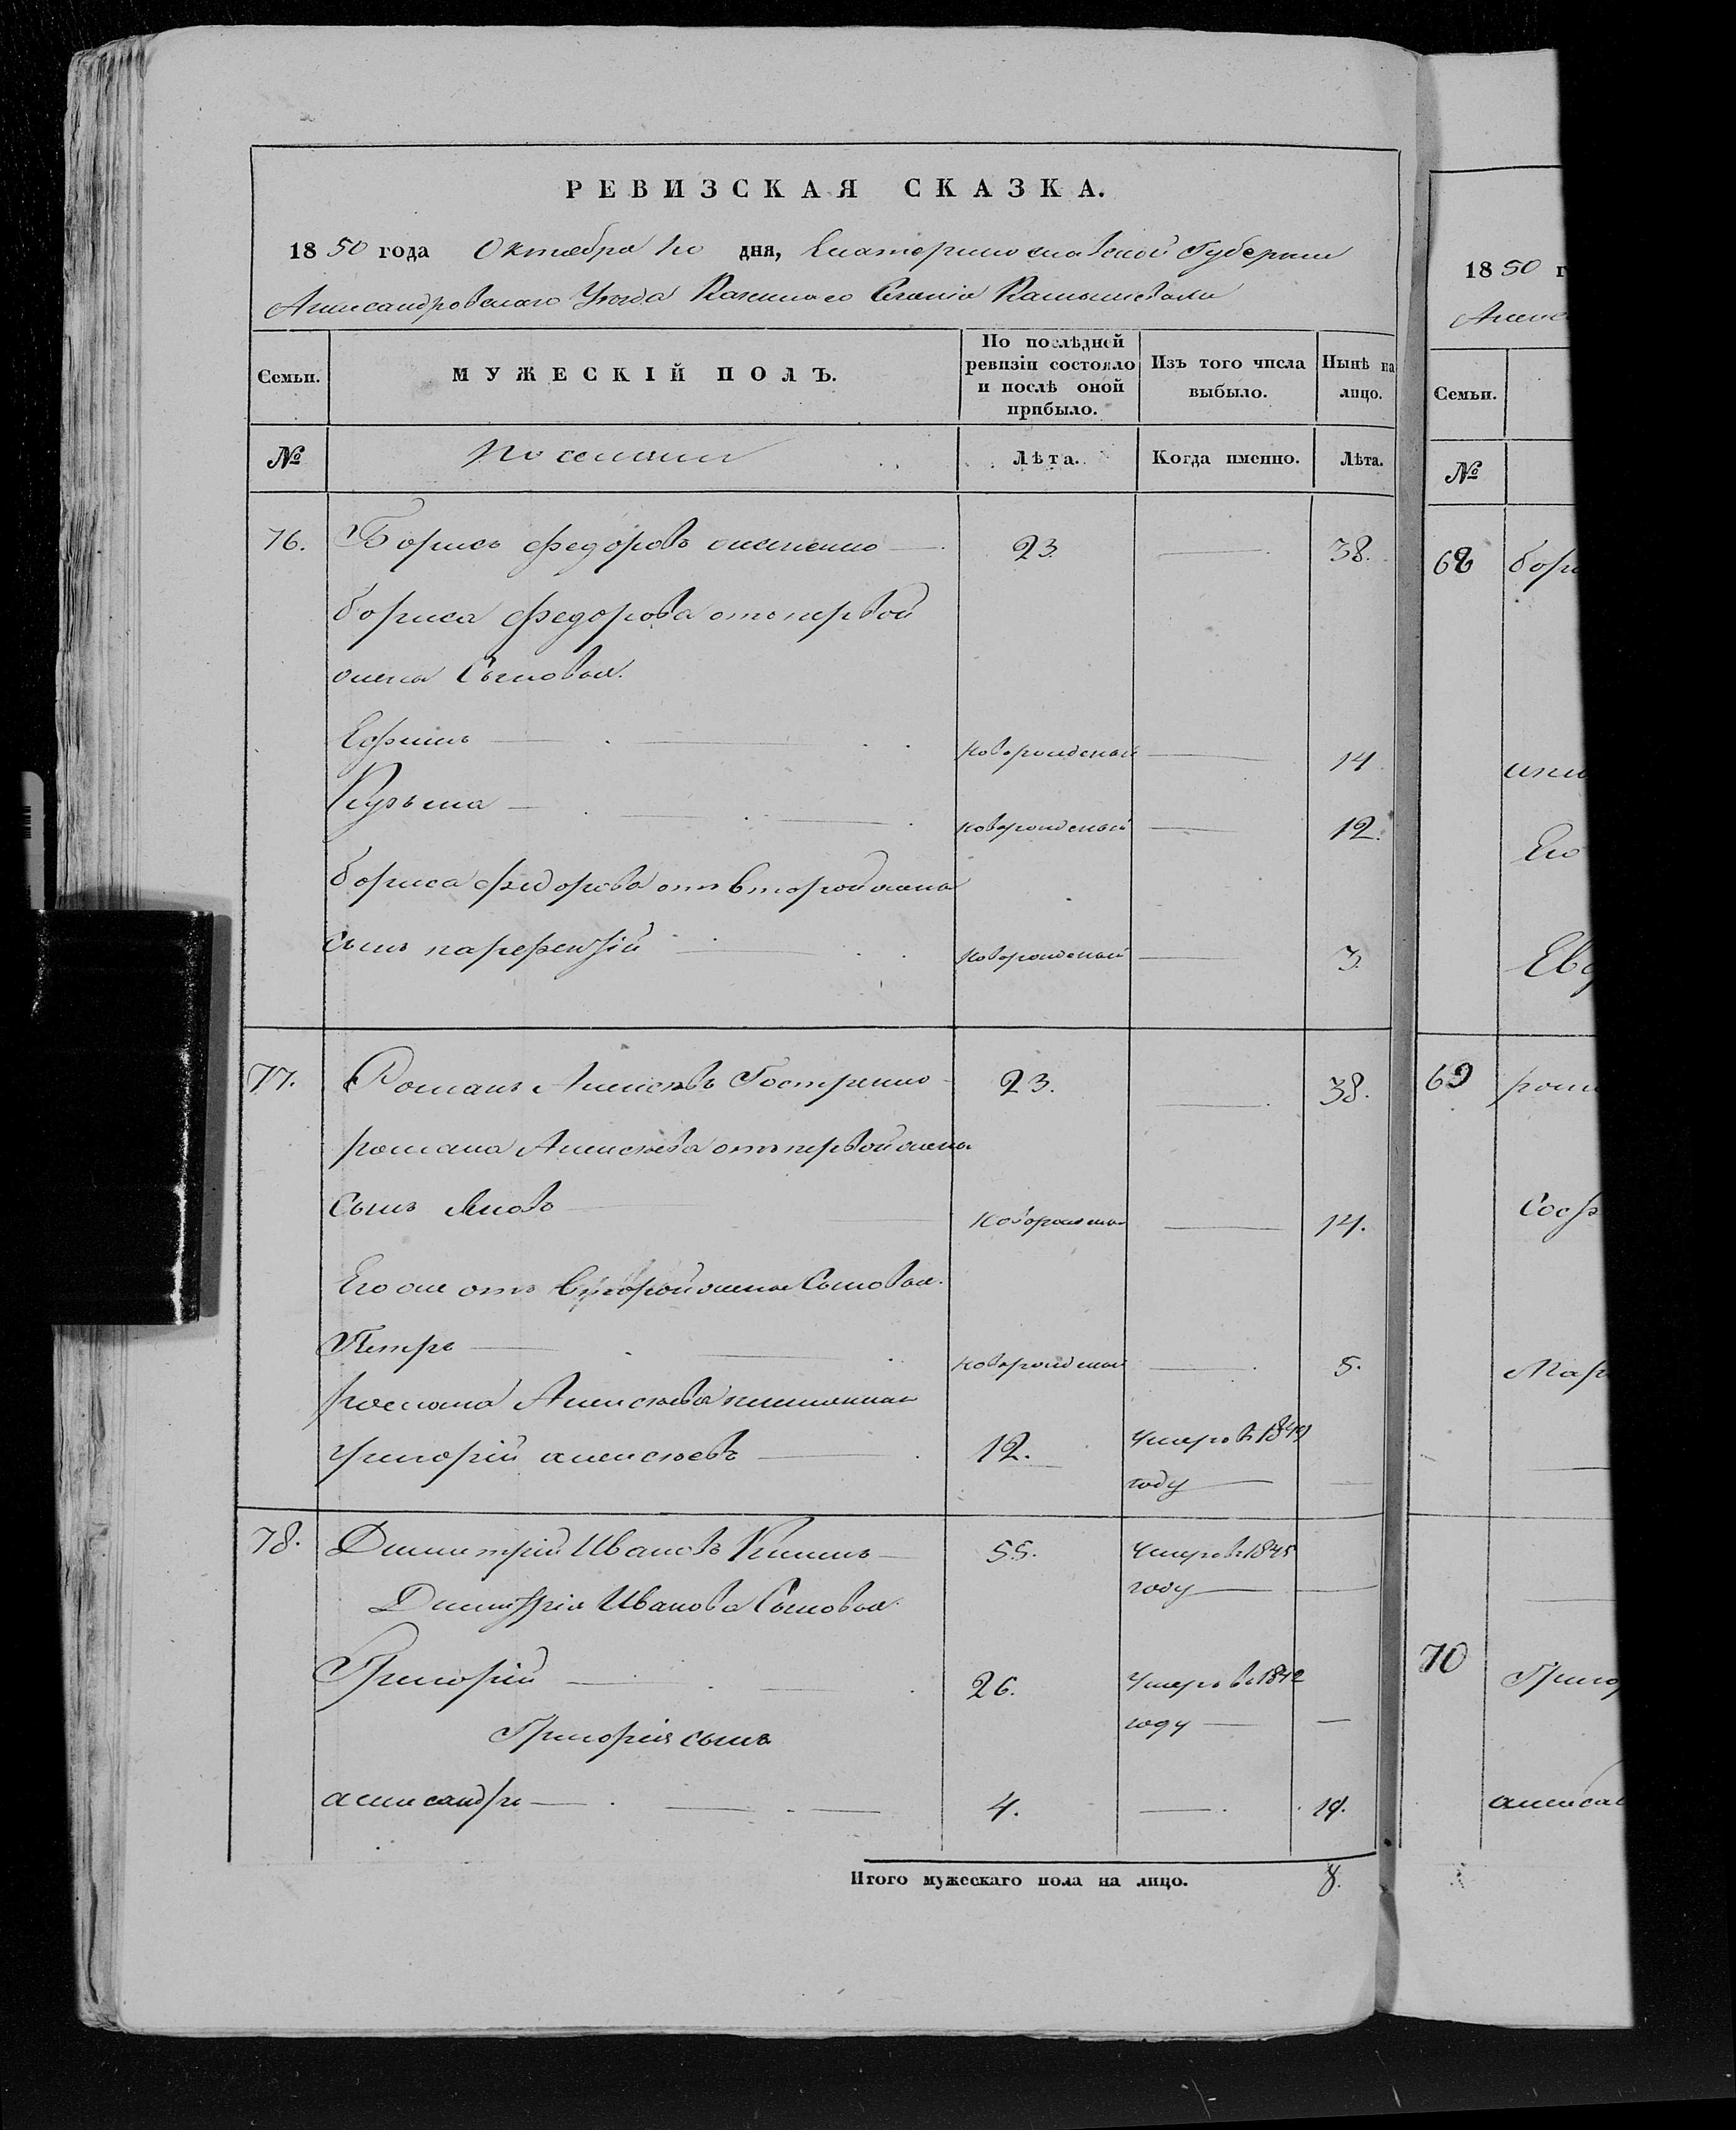 РЕВИЗСКАЯ СКАЗКА.
1850 года Октября дня, Екатеринославской Губернии
Александровскаго Уезда Казеннаго Селенія Камышевахи
Семьи.
МУЖЕСКІЙ ПОЛЪ.
По послѣдней ревизіи состояло и послѣ оной прибыло.
Изъ того числа выбыло.
Нынѣ на лицо.
№
Лѣта.
Когда именно.
Лѣта.
76. Борисъ Федоровъ 23 38.
бориса Федорова отъ первой
жены Сыновья.
Ефимъ новорожденый 14
Кузьма новорожденый 12.
бориса федорова отъ второй жены
сынъ парфентій новорожденый 3.
77. Романъ Алексѣевъ 23. 38.
романа Алексѣева отъ первой жены
Сынъ Яковъ 14.
Его же отъ второй жены Сыновья.
Петръ новорожденый 5.
романа Алексѣева племянникъ
григорій алексѣевъ 12. Умеръ въ 1849
году
78. Димитрій Ивановъ 55. Умеръ въ 1845
году
Димитрія Иванова Сыновья
Григорій 26. Умеръ въ 1842
году
Григорія сынъ
александръ 4. 19.
Итого мужескаго пола на лицо. 8.
1850 г
Семьи.
№
68 бори
Его
Евд
69 рома
Соф
Мар
70 Григо